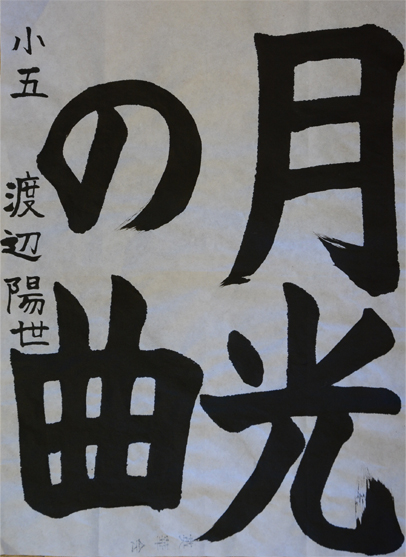 月光
の曲
小五 渡辺陽世